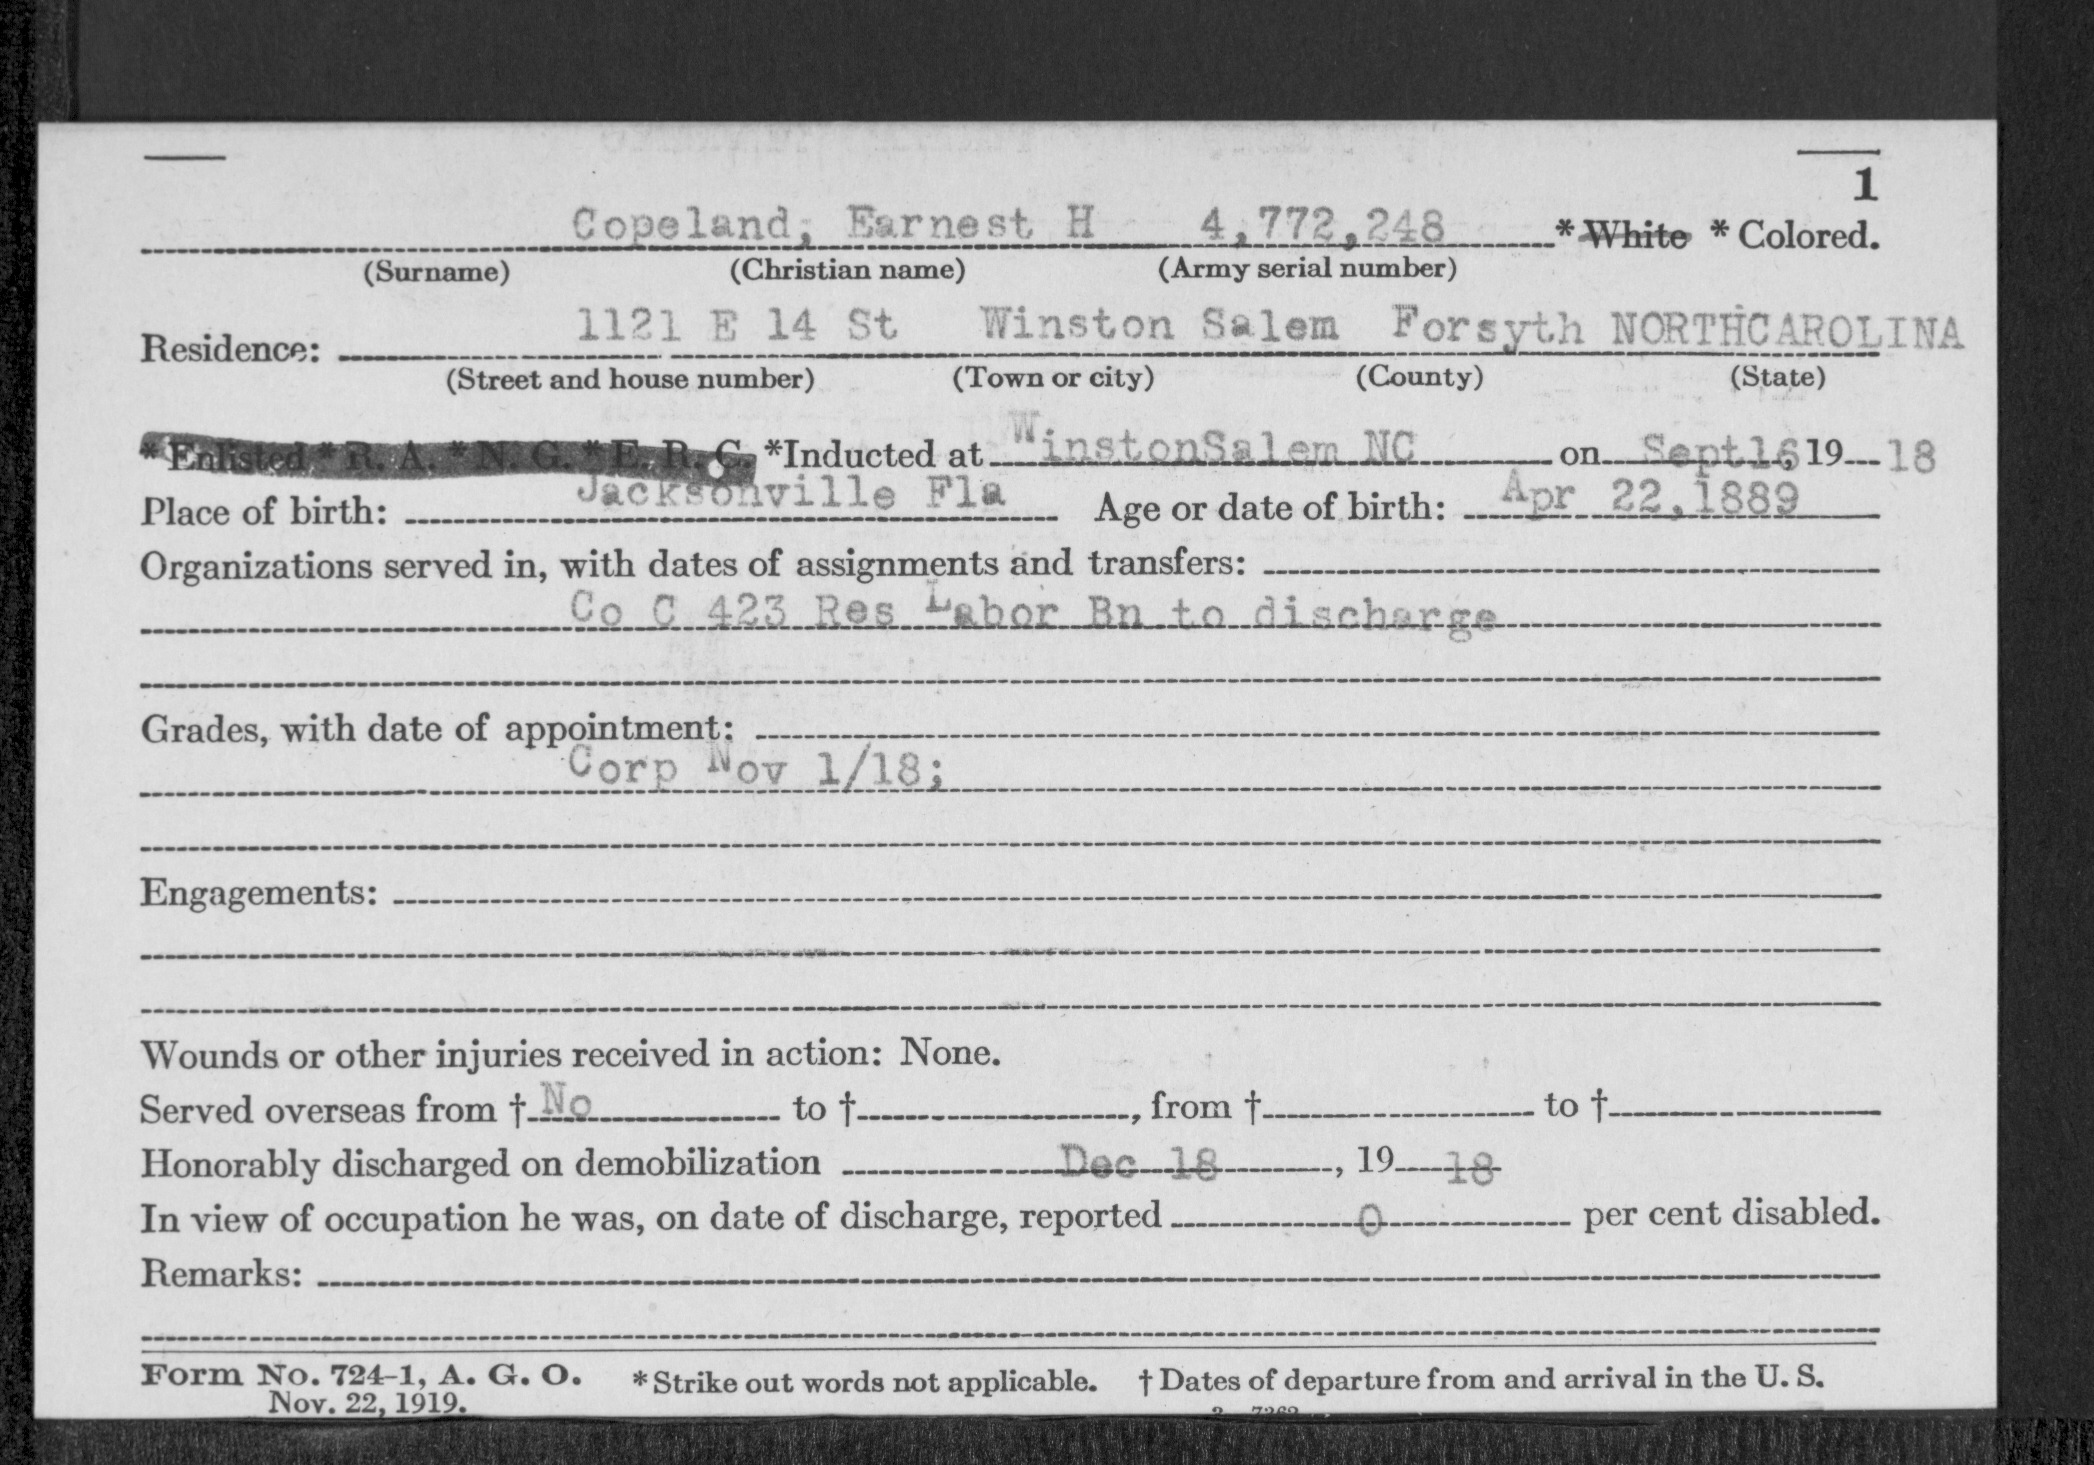 1
Copeland, Earnest H 4,772,248 * White * Colored.
(Surname) (Christian name) (Army serial number)
Residence: 1121 E 14 St Winston Salem Forsyth NORTHCAROLINA
(Street and house number) (Town or city) (County) (State)
* Enlisted * R. A. * N. G. * E. R. C. *Inducted at WinstonSalem NC on Sept16, 19 18
Place of birth: Jacksonville Fla Age or date of birth: Apr 22,1889
Organizations served in, with dates of assignments and transfers:
Co C 423 Res Labor Bn to discharge
Grades, with date of appointment:
Corp Nov 1/18;
Engagements:
Wounds or other injuries received in action: None.
Served overseas from † No to †, from † to †
Honorably discharged on demobilization Dec 18, 19 18
In view of occupation he was, on date of discharge, reported 0 per cent disabled.
Remarks:
Form No. 724-1, A. G. O. * Strike out words not applicable. † Dates of departure from and arrival in the U. S.
Nov. 22, 1919.